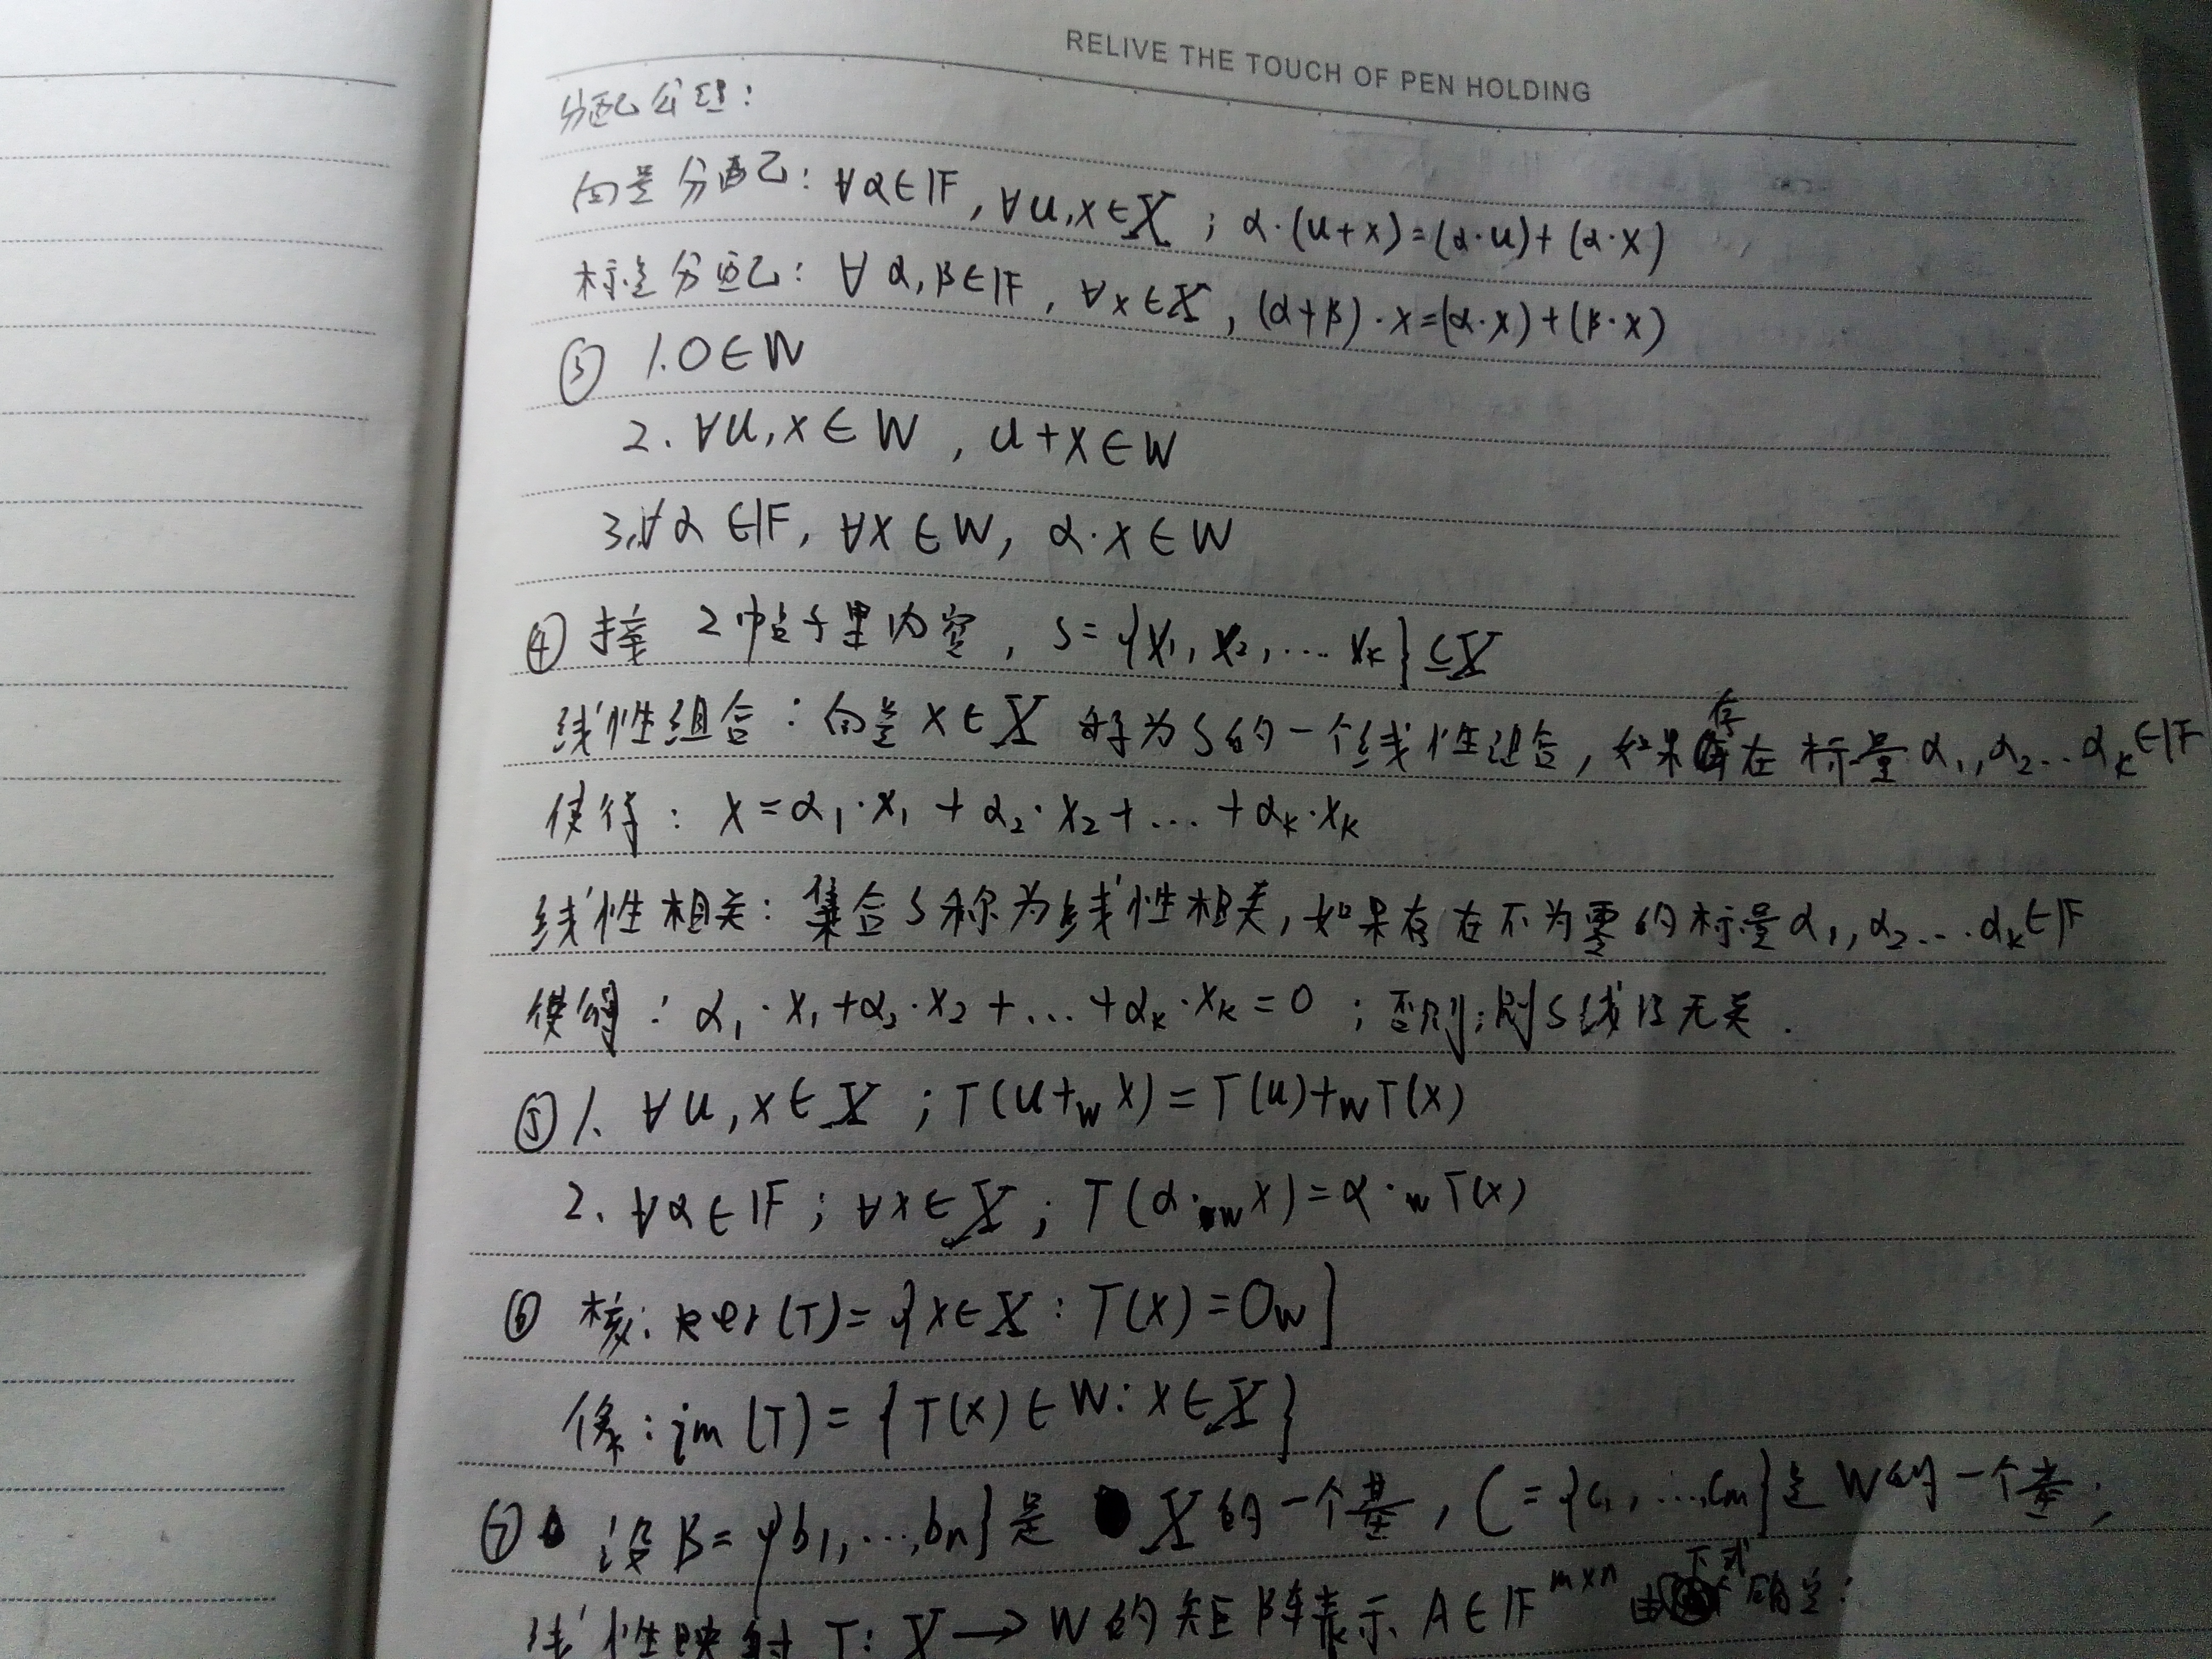 RELIVE THE TOUCH OF PEN HOLDING
分配公理:
向量分配: ∀α∈𝔽, ∀u,x∈X; α·(u+x)=(α·u)+(α·x)
标量分配: ∀α,β∈𝔽, ∀x∈X, (α+β)·x=(α·x)+(β·x)
③ 1. 0∈W
2. ∀u,x∈W, u+x∈W
3. ∀α∈𝔽, ∀x∈W, α·x∈W
④ 接 2帖子里内容, S={x₁, x₂, ... xₖ}⊆X
线性组合: 向量x∈X 称为S的一个线性组合, 如果存在标量α₁,α₂...αₖ∈𝔽
使得: x=α₁·x₁+α₂·x₂+...+αₖ·xₖ
线性相关: 集合S称为线性相关, 如果存在不为零的标量α₁,α₂...αₖ∈𝔽
使得: α₁·x₁+α₂·x₂+...+αₖ·xₖ=0; 否则;则S线性无关.
⑤ 1. ∀u,x∈X; T(u+_w x)=T(u)+_w T(x)
2. ∀α∈𝔽; ∀x∈X; T(α·_w x)=α·_w T(x)
⑥ 核: ker(T)={x∈X: T(x)=0_w}
像: im(T)={T(x)∈W: x∈X}
⑦ 设B={b₁,...,bₙ}是X的一个基, C={c₁,...,cₘ}是W的一个基;
线性映射T: X→W的矩阵表示A∈𝔽^{m×n}由下式确定: